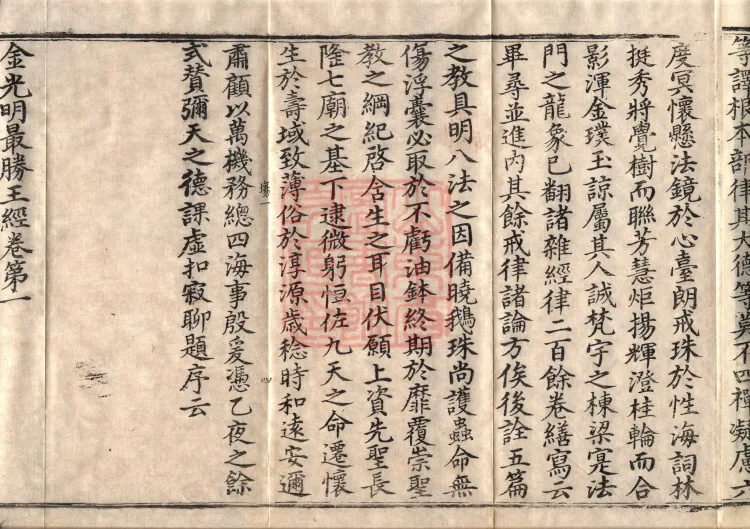 等譯根本部律其大德等莫不四禪凝慮六
度冥懷懸法鏡於心臺朗戒珠於性海詞林
挺秀將覺樹而聯芳慧炬揚輝澄桂輪而合
影渾金璞玉諒屬其人誠梵宇之棟梁寔法
門之龍象已翻諸雜經律二百餘卷繕寫云
畢尋並進內其餘戒律諸論方俟後詮五篇
之教具明八法之因備曉鵝珠尚護蟲命無
傷浮囊必取於不虧油鉢終期於靡覆崇聖
教之綱紀啓含生之耳目伏願上資先聖長
隆七廟之基下逮微躬恒佐九天之命遷懷
生於壽域致薄俗於淳源歲稔時和遠安邇
肅顧以萬機務總四海事殷爰憑乙夜之餘
式贊彌天之德課虛扣寂聊題序云
金光明最勝王經卷第一